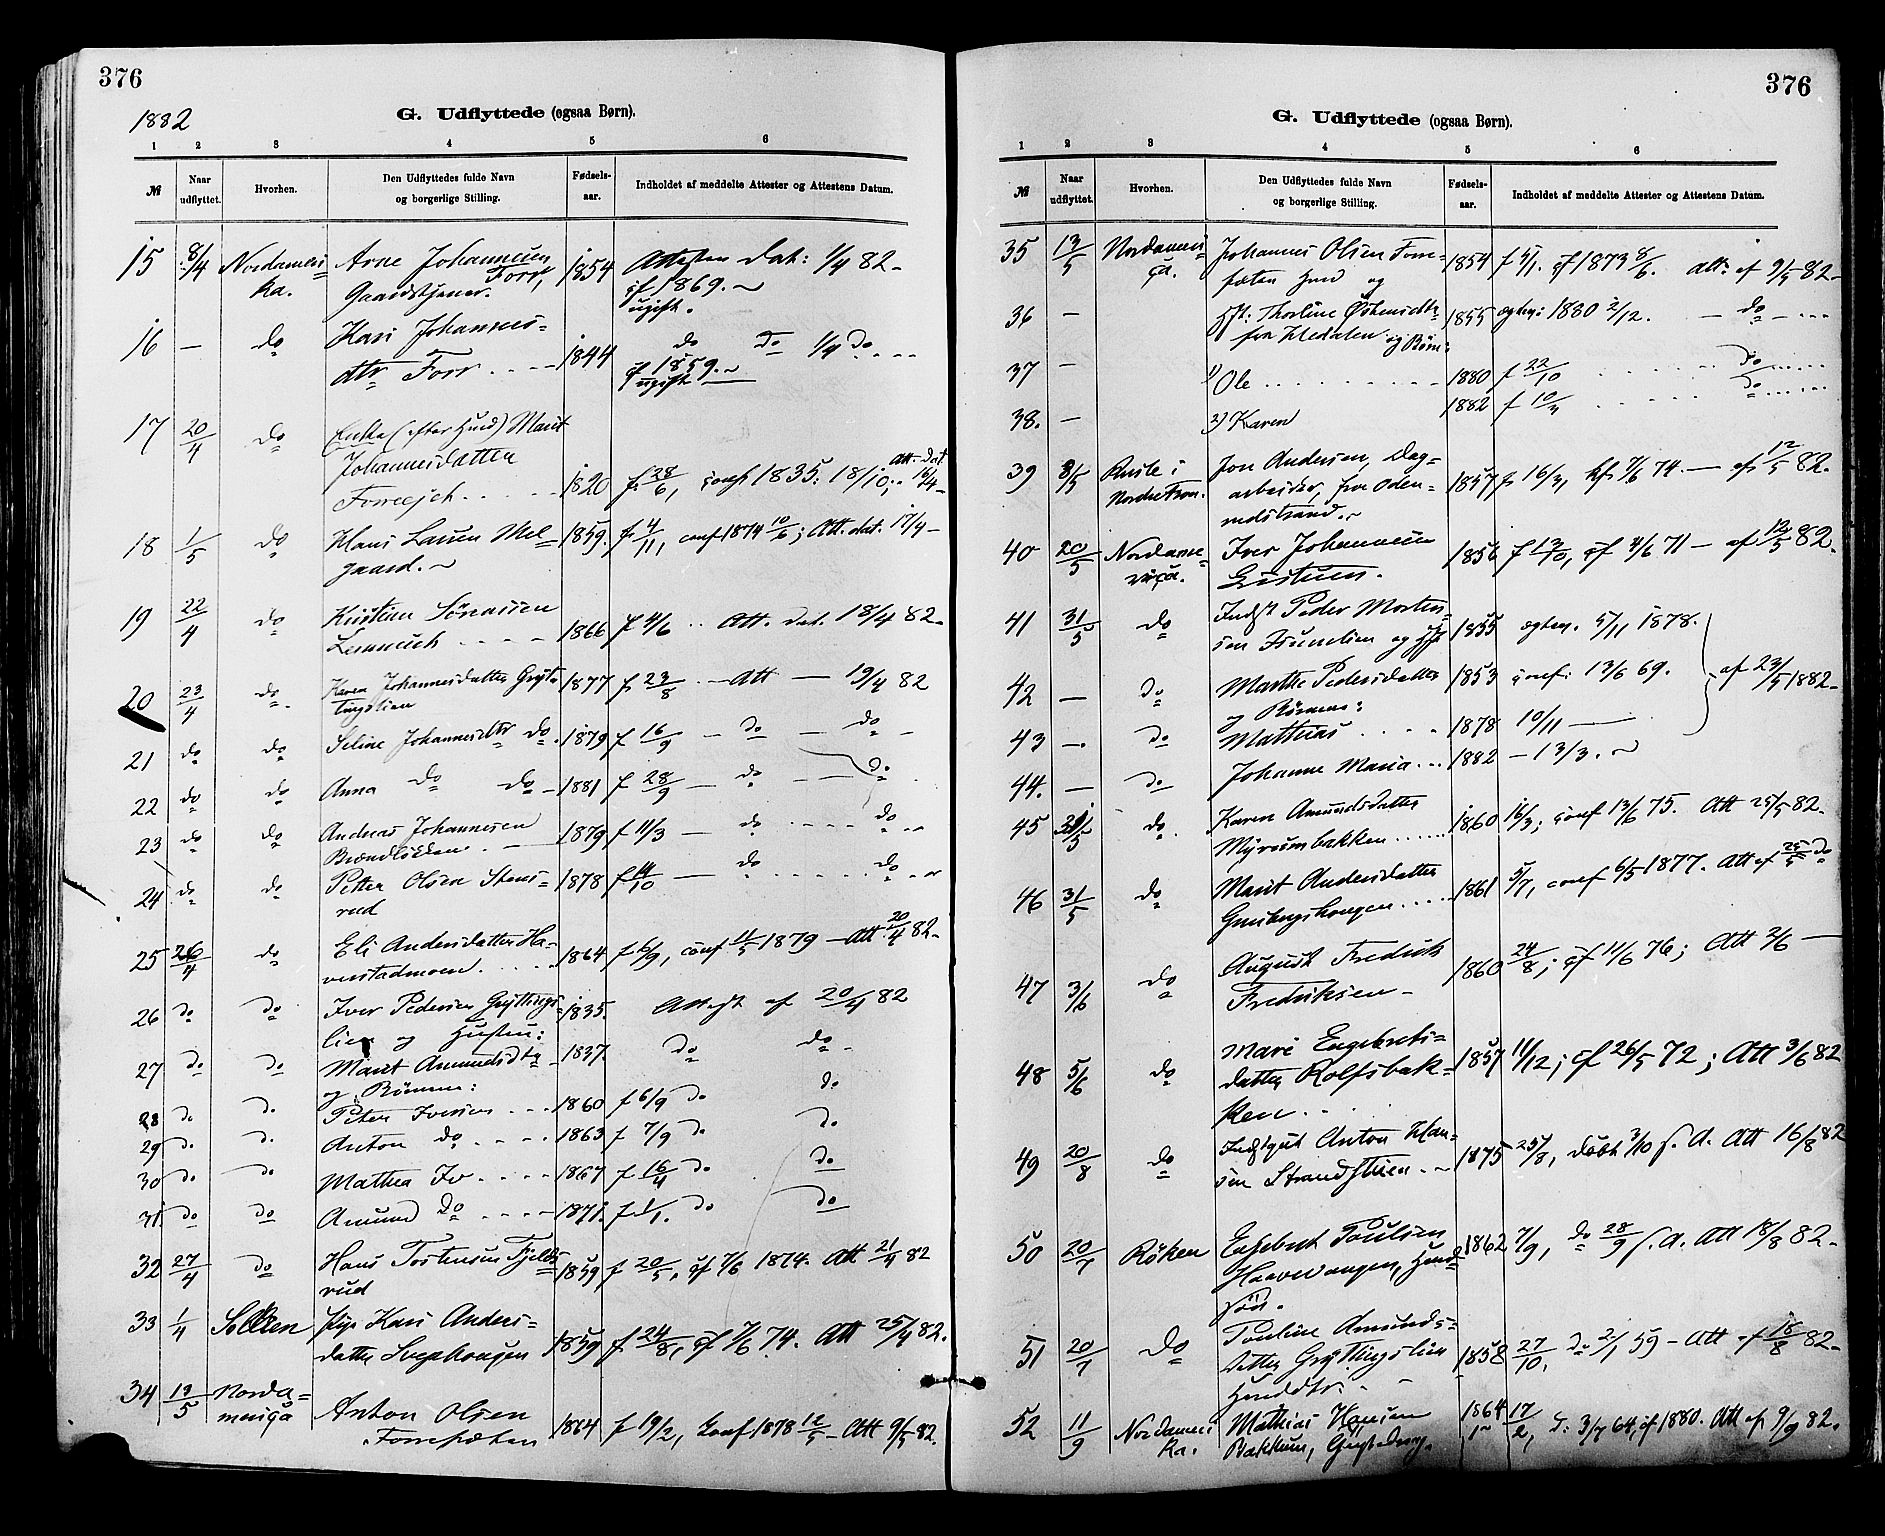 376
1882
G. Udflyttede (ogsaa Børn).
1 2 3 4 5 6
№ Naar udflyttet. Hvorhen. Den Udflyttedes fulde Navn og borgerlige Stilling. Fødsels-aar. Indholdet af meddelte Attester og Attestens Datum.
15 8/4 Nordameri= Arne Johannesen 1854 Attesten dat: 1/4 82-
ka. Forr, cf 1869. ~
Gaardstjener. ugift.
16 — do Kari Johannes= 1844 do do 1/4 do
dtr Forr cf 1859. ~
ugift —
17 20/4 do Enke (efter Husb) Marit
Johannesdatter Att. dat
1820 f. 28/6, conf 1835: 18/10;
18 1/5 do Hans Larsen Mel= 1859. f 4/11, conf 1874 10/6; Att. dat. 17/4 -
gaard. ~
19 22/4 do Kristian
1866 f 4/6 .. Att. dat. 18/4 82-
20 23/4 do. Karen Johannesdatter Gryt= 1877 f 23/8 - Att — 19/4 82
tingslien
21 do do Seline Johannesdtr do. 1879 f 16/9 — do — do -
22 do do Anna do do - 1881 f 28/9 — do — do
23 do do Andreas Johannesen 1879 f 11/3 — do do
Brændløkken
24 do do Petter Olsen Stens= 1878 f 14/10 — do do
rud
25 26/4 do Eli Andersdatter Ha= 1864 f 6/9, conf 11/5 1879 - Att. 20/4 82-
verstadmoen.
26 do do Iver Pedersen Gryttings= 1835. Attest af 20/4 82
lien og Hustru:
27 do do Marit Amundsdtr 1837. do do -
og Børnene:
28 do do Peter Iversen 1860 f 6/9 do do
29 do do Anton do 1863 f 7/9 do do
30 do do Mathea Iv 1867 f 16/4 do do
31 do do Amund do 1871. f 1/1. do do
32 27/4 do Hans Tostensen Fjelds= 1859, f 20/5, cf 7/6 1874. Att 21/4 82
rud
33 1/4 Pige Kari Anders= 1859 f 24/8, cf 7/6 74. Att 25/4 82.
datter
34 13/5 Norda=
merica Anton Olsen 1864 f 19/2, Conf 1878 12/5 - Att 9/5 82.
376
G. Udflyttede (ogsaa Børn).
1 2 3 4 5 6
№ Naar udflyttet. Hvorhen. Den Udflyttedes fulde Navn og borgerlige Stilling. Fødsels-aar. Indholdet af meddelte Attester og Attestens Datum.
35 13/5 Nordameri= Johannes Olsen Forr= 1854 f 5/1. cf 1873 8/6. att. af 9/5 82-
ca. og
36 — Thorline 1855 egtev: 1880 2/12. — do —
og Børn:
37 — 1) Ole 1880 f 22/10 do
38. — 2) Karen 1882 f 10/3 do
39 8/5 i Jon Andersen, Dag= 1857 f 16/3, kf. 7/6 74. — af 12/5 82.
Nordre Fron. arbeider, fra Oden=
rudstrand. ~
40 20/5 Nordame= Iver Johannesen 1856 f 13/10, cf 4/6 71 — af 12/5 82-
rica.
41 31/5 do Indst Peder Morten= 1855 egtev. 5/11 1878.
sen
42 — do Marthe Pedersdatter 1853 conf: 13/6 69. af 23/5 1882-
og Børnene:
43 —. do Matthias 1878 10/11 —
44. — do Johanne Maria 1882 — 13/3. ~
45 31/5 do. Karen Amundsdatter 1860 16/3; conf 13/6 75. Att 25/5 82-
Myrumbakken
46 31/5 do Marit Andersdatter 1861 5/7, conf 6/5 1877. Att af 25/5 do
47 3/6 do August Fredrik 1860 24/8; cf 11/6 76; Att 3/6 —
Fredriksen -
48 5/6 do Mari Engebrets= 1857 11/12; cf 26/5 72; Att 3/6 82
datter Rolfsbak=
ken
49 20/8 do Anton Han= 1875 25/8, døbt 3/10 s. A. Att 16/8 82
sen Strandstuen
50 20/7 Röken Engebret Poulsen 1862 7/9, do 28/9 s. A. Att 18/8 82-
Husmds=
søn.
51 20/7 do Pouline Amunds= 1858 27/10, do 2/1 59 - Att af 18/8 82-
datter Gryttingslien
Husmdtr.
52 11/9 Nordameri= Mathias Hansen 1864 17/2, d: 3/7 64, cf 1880. Att af 9/9 82.
ka. Bakkum,